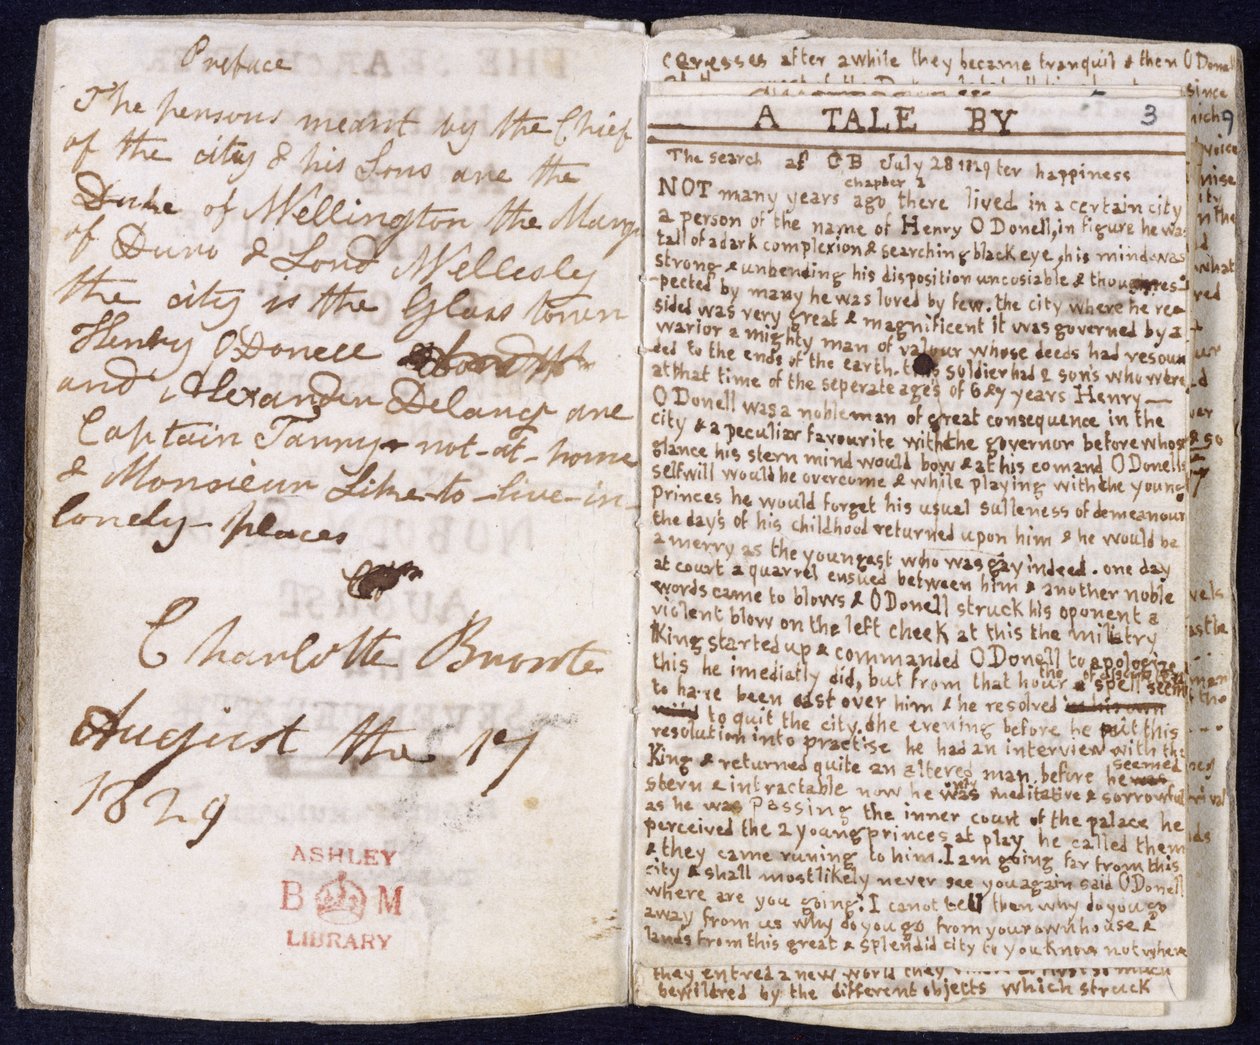 Preface
The persons meant by the Chief
of the city & his Sons are the
Duke of Wellington the Marqu
of Duro & Lord Wellesley
the city is the Glass town
Henry O Donell
and Alexander Delancy are
Captain Tarry-not-at-home
& Monsieur Like-to-live-in-
lonely-places
Charlotte Bronte
August the 17
1829
ASHLEY
B M
LIBRARY
caresses after a while they became tranquil & then O Donell
A TALE BY
3
9
The search af CB July 28 1829 ter happiness
chapter 1
NOT many years ago there lived in a certain city
a person of the name of Henry O Donell, in figure he was
tall of a dark complexion & searching black eye, his mind was
strong & unbending his disposition unsociable & though res-
-pected by many he was loved by few. the city where he re-
sided was very great & magnificent it was governed by a
warior a mighty man of valour whose deeds had resoun
ded to the ends of the earth. this soldier had 2 sons who were
at that time of the seperate age's of 6 & 7 years Henry
O Donell was a nobleman of great consequence in the
city & a peculiar favourite with the governor before whose
glance his stern mind would bow & at his comand O Donells
selfwill would be overcome & while playing with the young
Princes he would forget his usual sulleness of demeanour
the day's of his childhood returned upon him & he would be
a merry as the youngest who was gay indeed. one day
at court a quarrel ensued between him & another noble
words came to blows & O Donell struck his oponent a
violent blow on the left cheek at this the military
King started up & commanded O Donell to apologize
this he imediatly did, but from that hour the spell of discontent seem
to have been cast over him & he resolved
to quit the city. the evening before he put this
resolution into practise he had an interview with the
King & returned quite an altered man. before he seemed
stern & intractable now he was only meditative & sorrowful
as he was Passing the inner court of the palace he
perceived the 2 young princes at play he called them
& they came runing to him. I am going far from this
city & shall most likely never see you again said O Donell
where are you going? I canot tell then why do you go
away from us why do you go from your own house &
lands from this great & splendid city to you know not where
they entred a new world they
bewildred by the different objects which struck